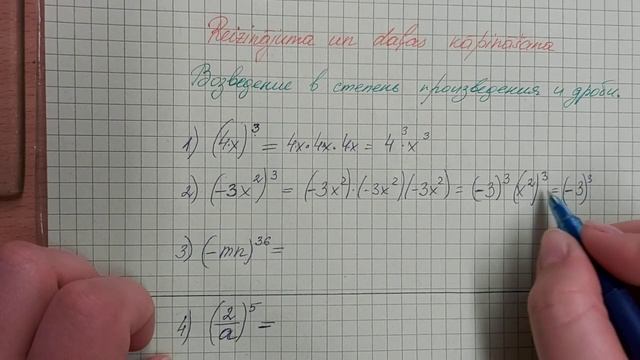 Reizinājuma un daļas kāpināšana
Возведение в степень произведения и дроби.
1) (4·x)³ = 4x·4x·4x = 4³·x³
2) (-3x²)³ = (-3x²)·(-3x²)(-3x²) = (-3)³(x²)³ = (-3)³
3) (-mn)³⁶ =
4) (2/a)⁵ =